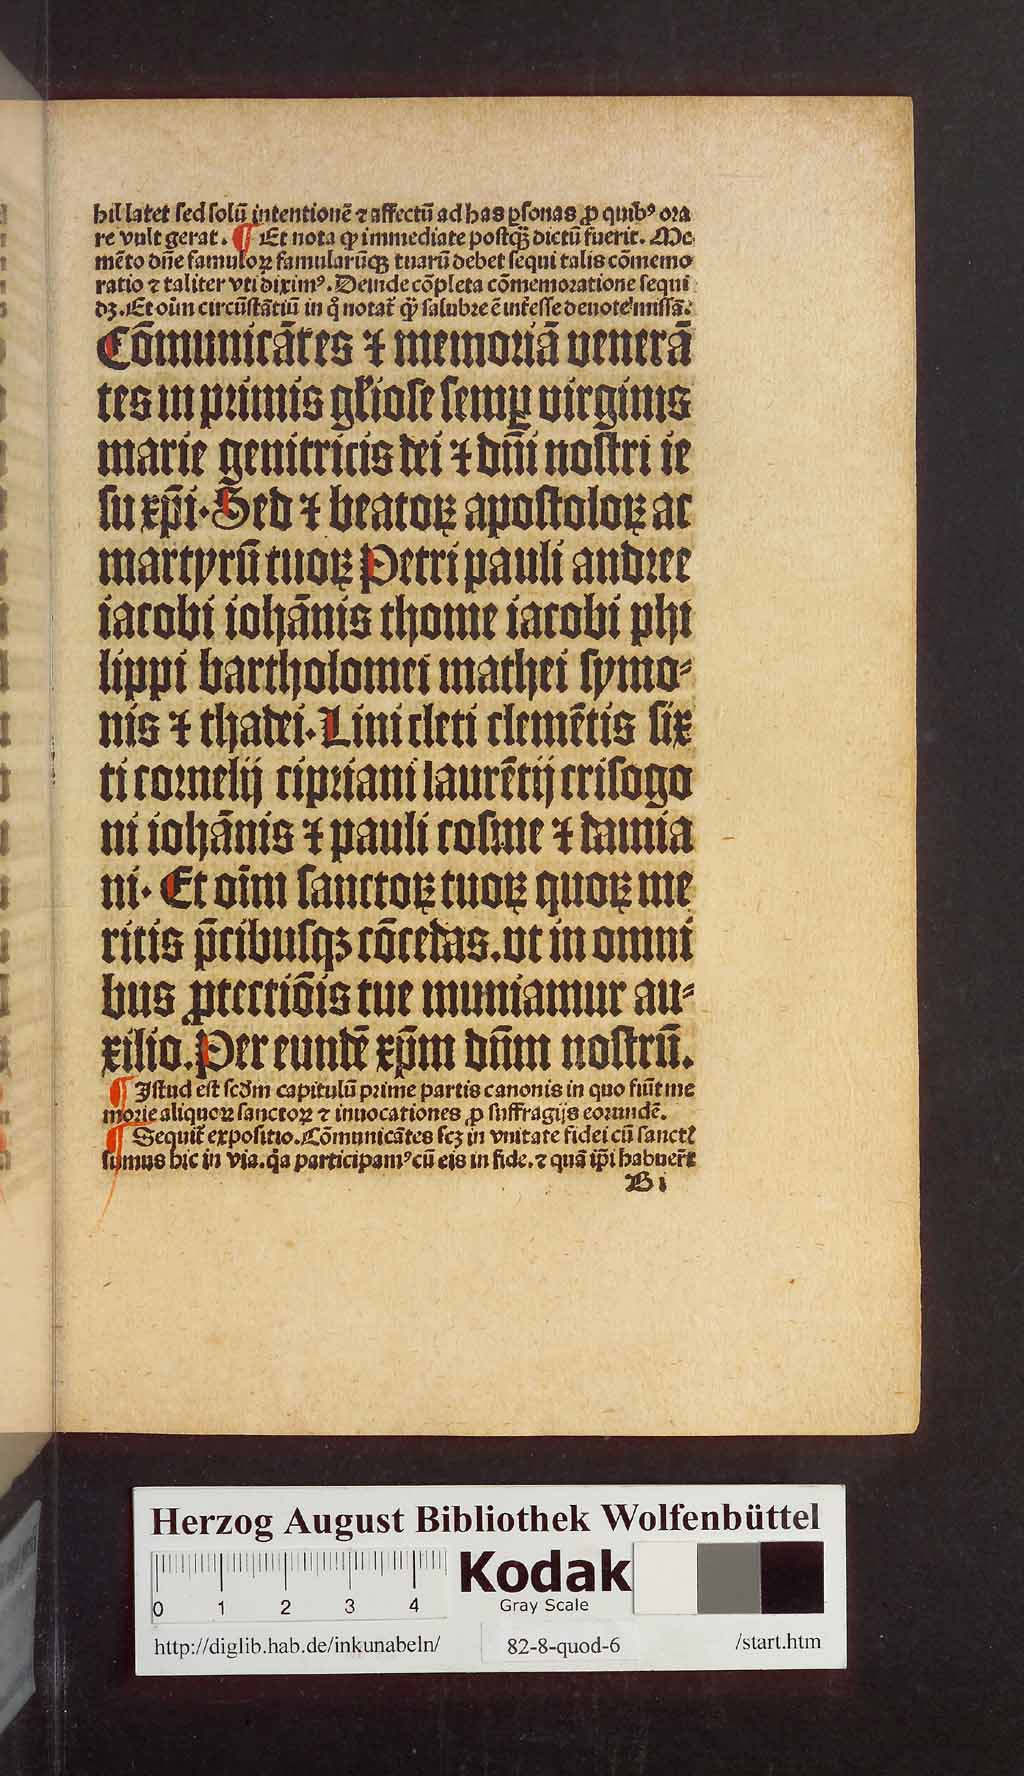 hil latet sed solū intentionē ⁊ affectū ad has ꝑsonas ꝓ quibꝰ ora
re vult gerat. ¶ Et nota ꝙ immediate postꝙ̄ dictū fuerit. Me
mēto dn̄e famuloꝝ famularūqꝫ tuarū debet sequi talis cōmemo
ratio ⁊ taliter vti diximꝰ. Deinde cōpleta cōmemoratione sequi
dꝫ. Et oīm circūstātiū in notat᷑ salubre ē int̄esse deuote missā.
Cōmunicātes ⁊ memoriā venerā
tes in primis gl̄iose semꝑ virginis
marie genitricis dei ⁊ dn̄i nostri ie
su xp̄i. Sed ⁊ beatoꝝ apostoloꝝ ac
martyrū tuoꝝ Petri pauli andree
iacobi iohānis thome iacobi phi
lippi bartholomei mathei symo⸗
nis ⁊ thadei. Lini cleti clemētis six
ti cornelij cipriani laurētij crisogo
ni iohānis ⁊ pauli cosme ⁊ damia
ni. Et oīm sanctoꝝ tuoꝝ quoꝝ me
ritis p̄cibusqꝫ cōcedas. vt in omni
bus ꝓtectiōis tue muniamur au⸗
xilio. Per eundē xp̄m dn̄m nostrū.
¶ Istud est scd̄m capitulū prime partis canonis in quo fiūt me
morie aliquoꝝ sanctoꝝ ⁊ inuocationes ꝓ suffragijs eorundē.
¶ Sequit᷑ expositio. Cōmunicātes scꝫ in vnitate fidei cū sanct
sumus hic in via. q̄a participamꝰ cū eis in fide. ⁊ quā ip̄i habuer̄t
B i
Herzog August Bibliothek Wolfenbüttel
0 1 2 3 4
Kodak
Gray Scale
http://diglib.hab.de/inkunabeln/ 82-8-quod-6 /start.htm